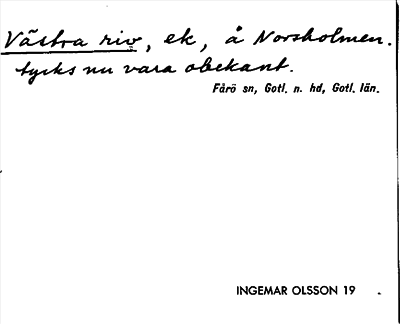 Västra riv, ek, å Norsholmen.
tycks nu vara obekant.
Fårö sn, Gotl. n. hd, Gotl. län.
INGEMAR OLSSON 19